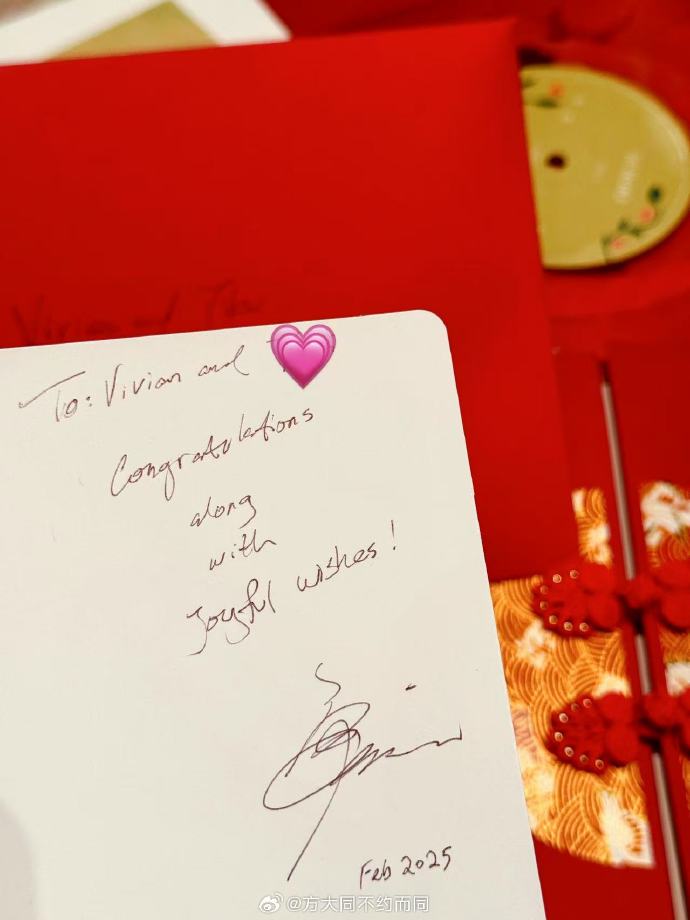 Vivian and
To: Vivian and
Congratulations
along
with
Joyful wishes!
Feb 2025
@方大同不约而同